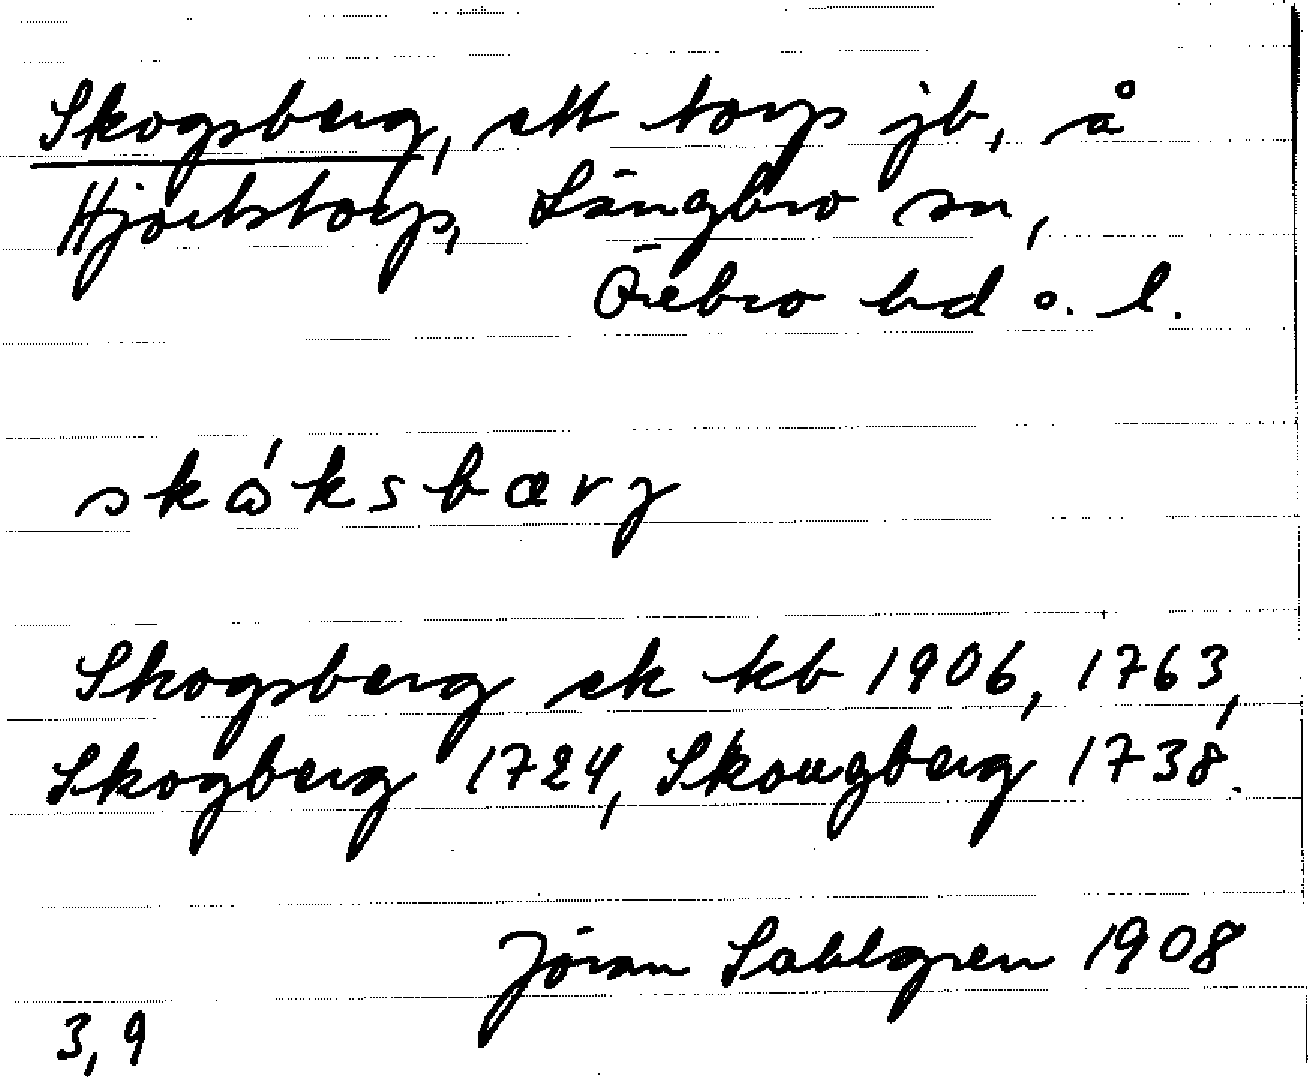 Skogsberg, ett torp jb, å
Hjortstorp, Längbro sn,
Örebro hd o. l.
skɷ́ksbærȷ
Skogsberg ek kb 1906, 1763,
Skogberg 1724, Skougberg 1738.
Jöran Sahlgren 1908
3, 9